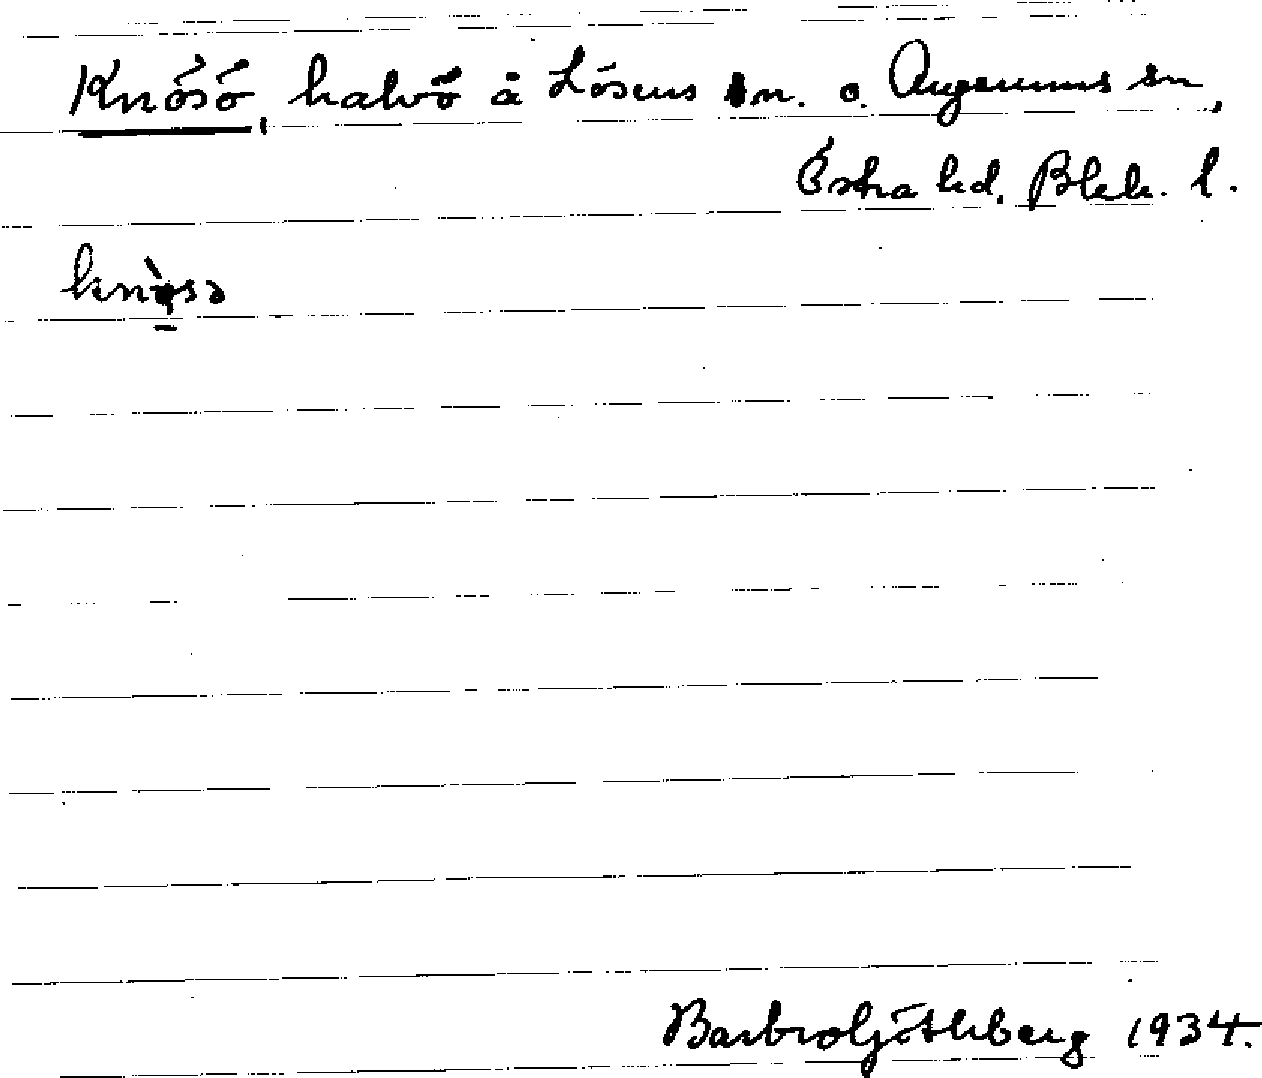 Knösö, halvö å Lösens sn. o. Augerums sn,
Östra hd. Blek. l.
Barbro Götlberg 1934.